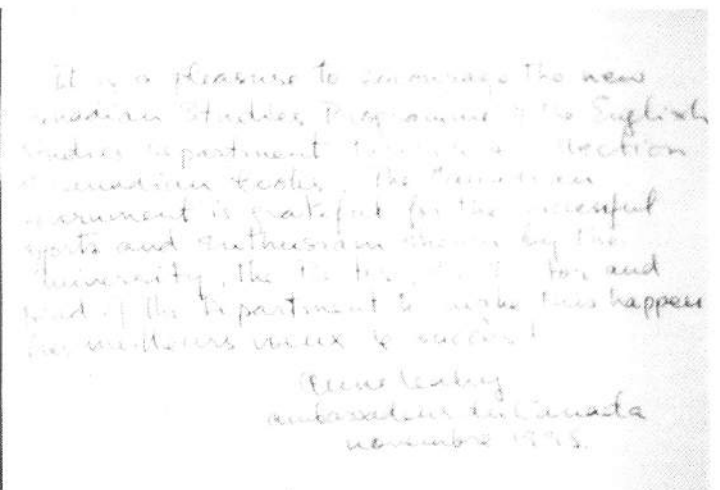 It is a pleasure to encourage the new
Canadian Studies Programme of the English
Studies Department through a selection
of Canadian books. The Canadian
Government is grateful for the successful
efforts and enthusiasm shown by the
University, the and
Head of the Department to make this happen
Nos meilleurs voeux de succès!
Anne Leahy
ambassadeur du Canada
novembre 1995.